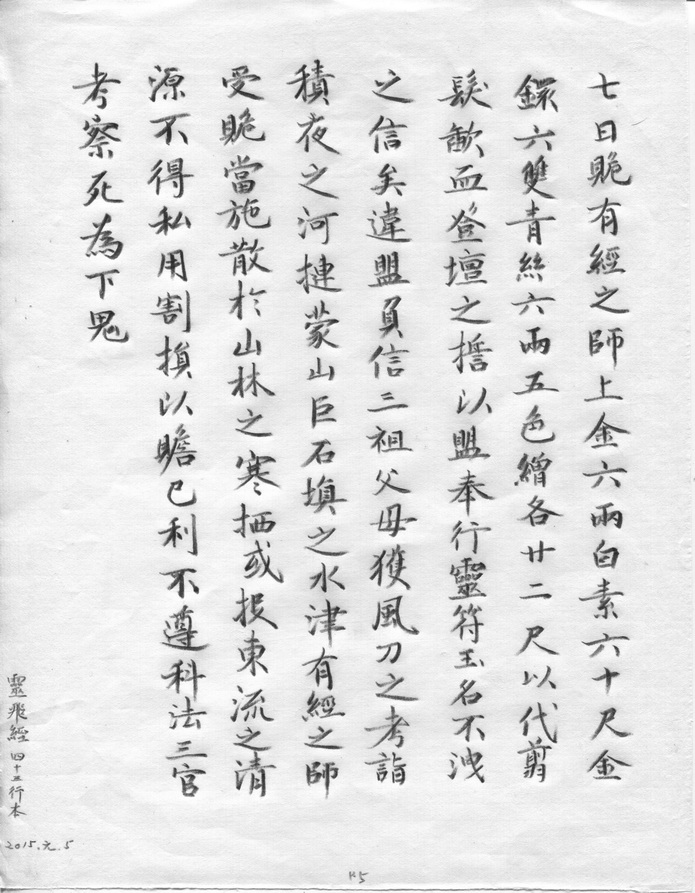 七日貤有經之師上金六兩白素六十尺金
鐶六雙青絲六兩五色繒各廿二尺以代翦
髮歃血登壇之誓以盟奉行靈符玉名不洩
之信矣違盟負信三祖父母獲風刀之考詣
積夜之河摙蒙山巨石填之水津有經之師
受貤當施散於山林之寒栖或投東流之清
源不得私用割損以贍己利不遵科法三官
考察死為下鬼
靈飛經 四十三行本
2015.元.5